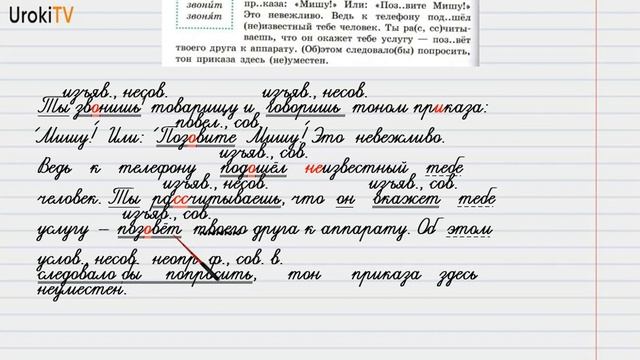 UrokiTV
звони́т
звоня́т
пр..каза: «Мишу!» Или: «Поз..вите Мишу!»
Это невежливо. Ведь к телефону под..шёл
(не)известный тебе человек. Ты ра(с, сс)читы-
ваешь, что он окажет тебе услугу — поз..вёт
твоего друга к аппарату. (Об)этом следовало(бы) попросить,
тон приказа здесь (не)уместен.
изъяв., несов. изъяв., несов.
Ты звонишь товарищу и говоришь тоном приказа:
повел., сов.
"Мишу! Или: "Позовите Мишу! Это невежливо.
изъяв., сов.
Ведь к телефону подошёл неизвестный тебе
изъяв., несов. изъяв., сов.
человек. Ты рассчитываешь, что он вкажет тебе
изъяв., сов.
услугу – позовёт твоего друга к аппарату. Об этом
услов., несов. неопр. ф., сов. в.
следовало бы попросить, тон приказа здесь
неуместен.